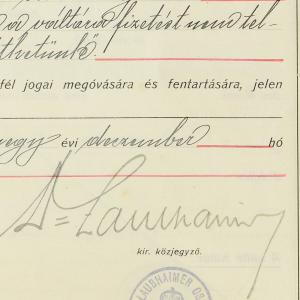 a váltócza fizetést nem tel-
thetünk".
fél jogai megóvására és fentartására, jelen
negy évi deczember hó
Dr Laubhaimer
kir. közjegyző.
LAUBHAIMER OS